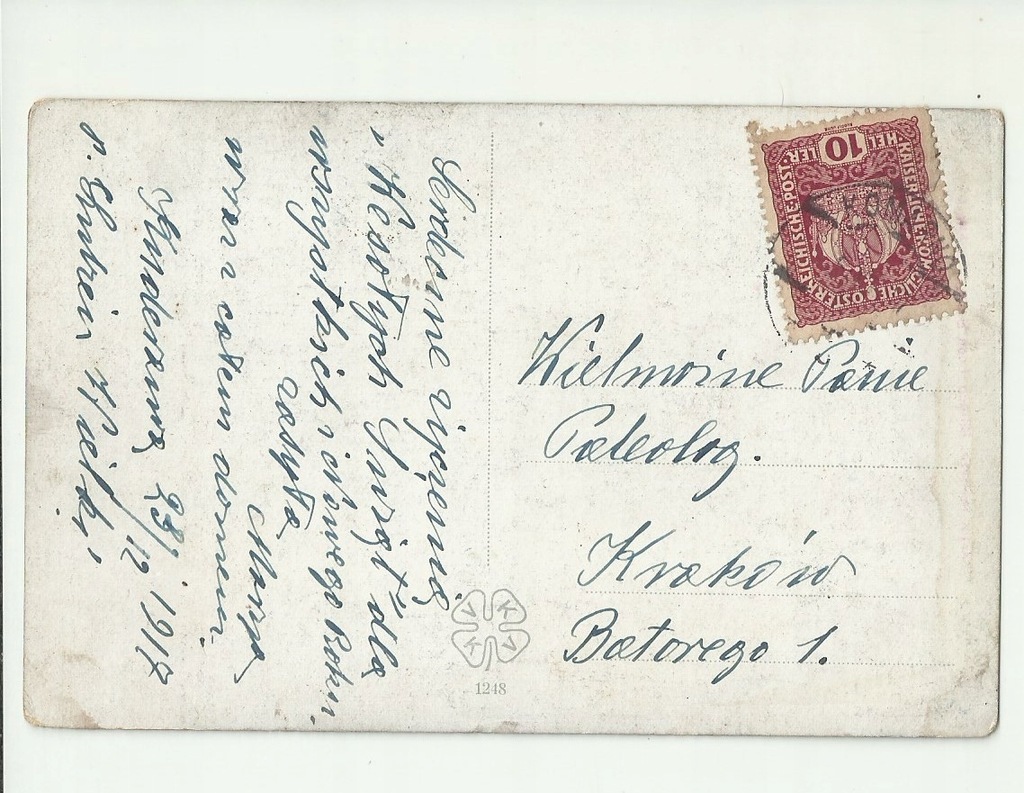 Serdeczne życzenia
Wesołych Świąt dla
wszystkich i Nowego Roku
zasyła
Marya
wraz z całym domem.
28/12 1917
Wielmożne Panie
Paleolog.
Kraków
Batorego 1.
KAISERLICHE KÖNIGLICHE ÖSTERREICHISCHE POST
10
HELLER
K V K V
1248